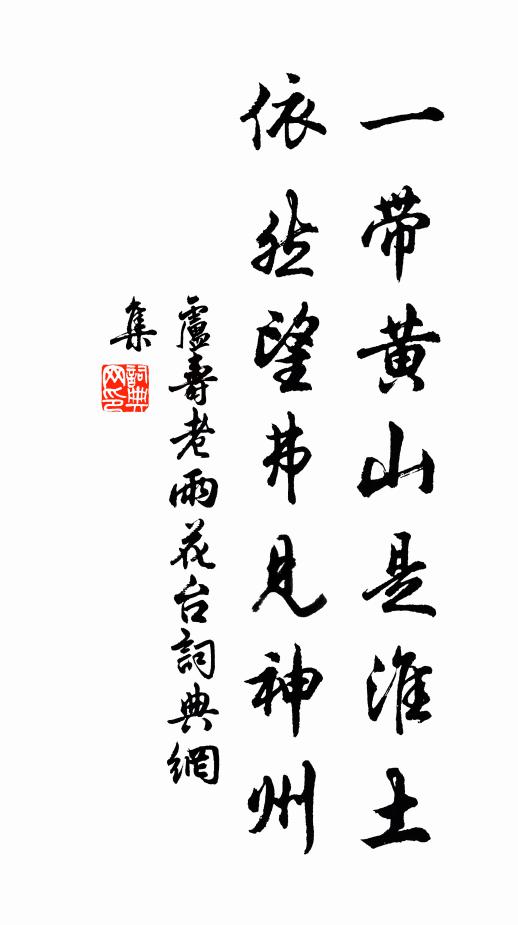 一带黄山是淮土
依然望弗見神州
盧壽老雨花台詞典網
集
詞典
网印